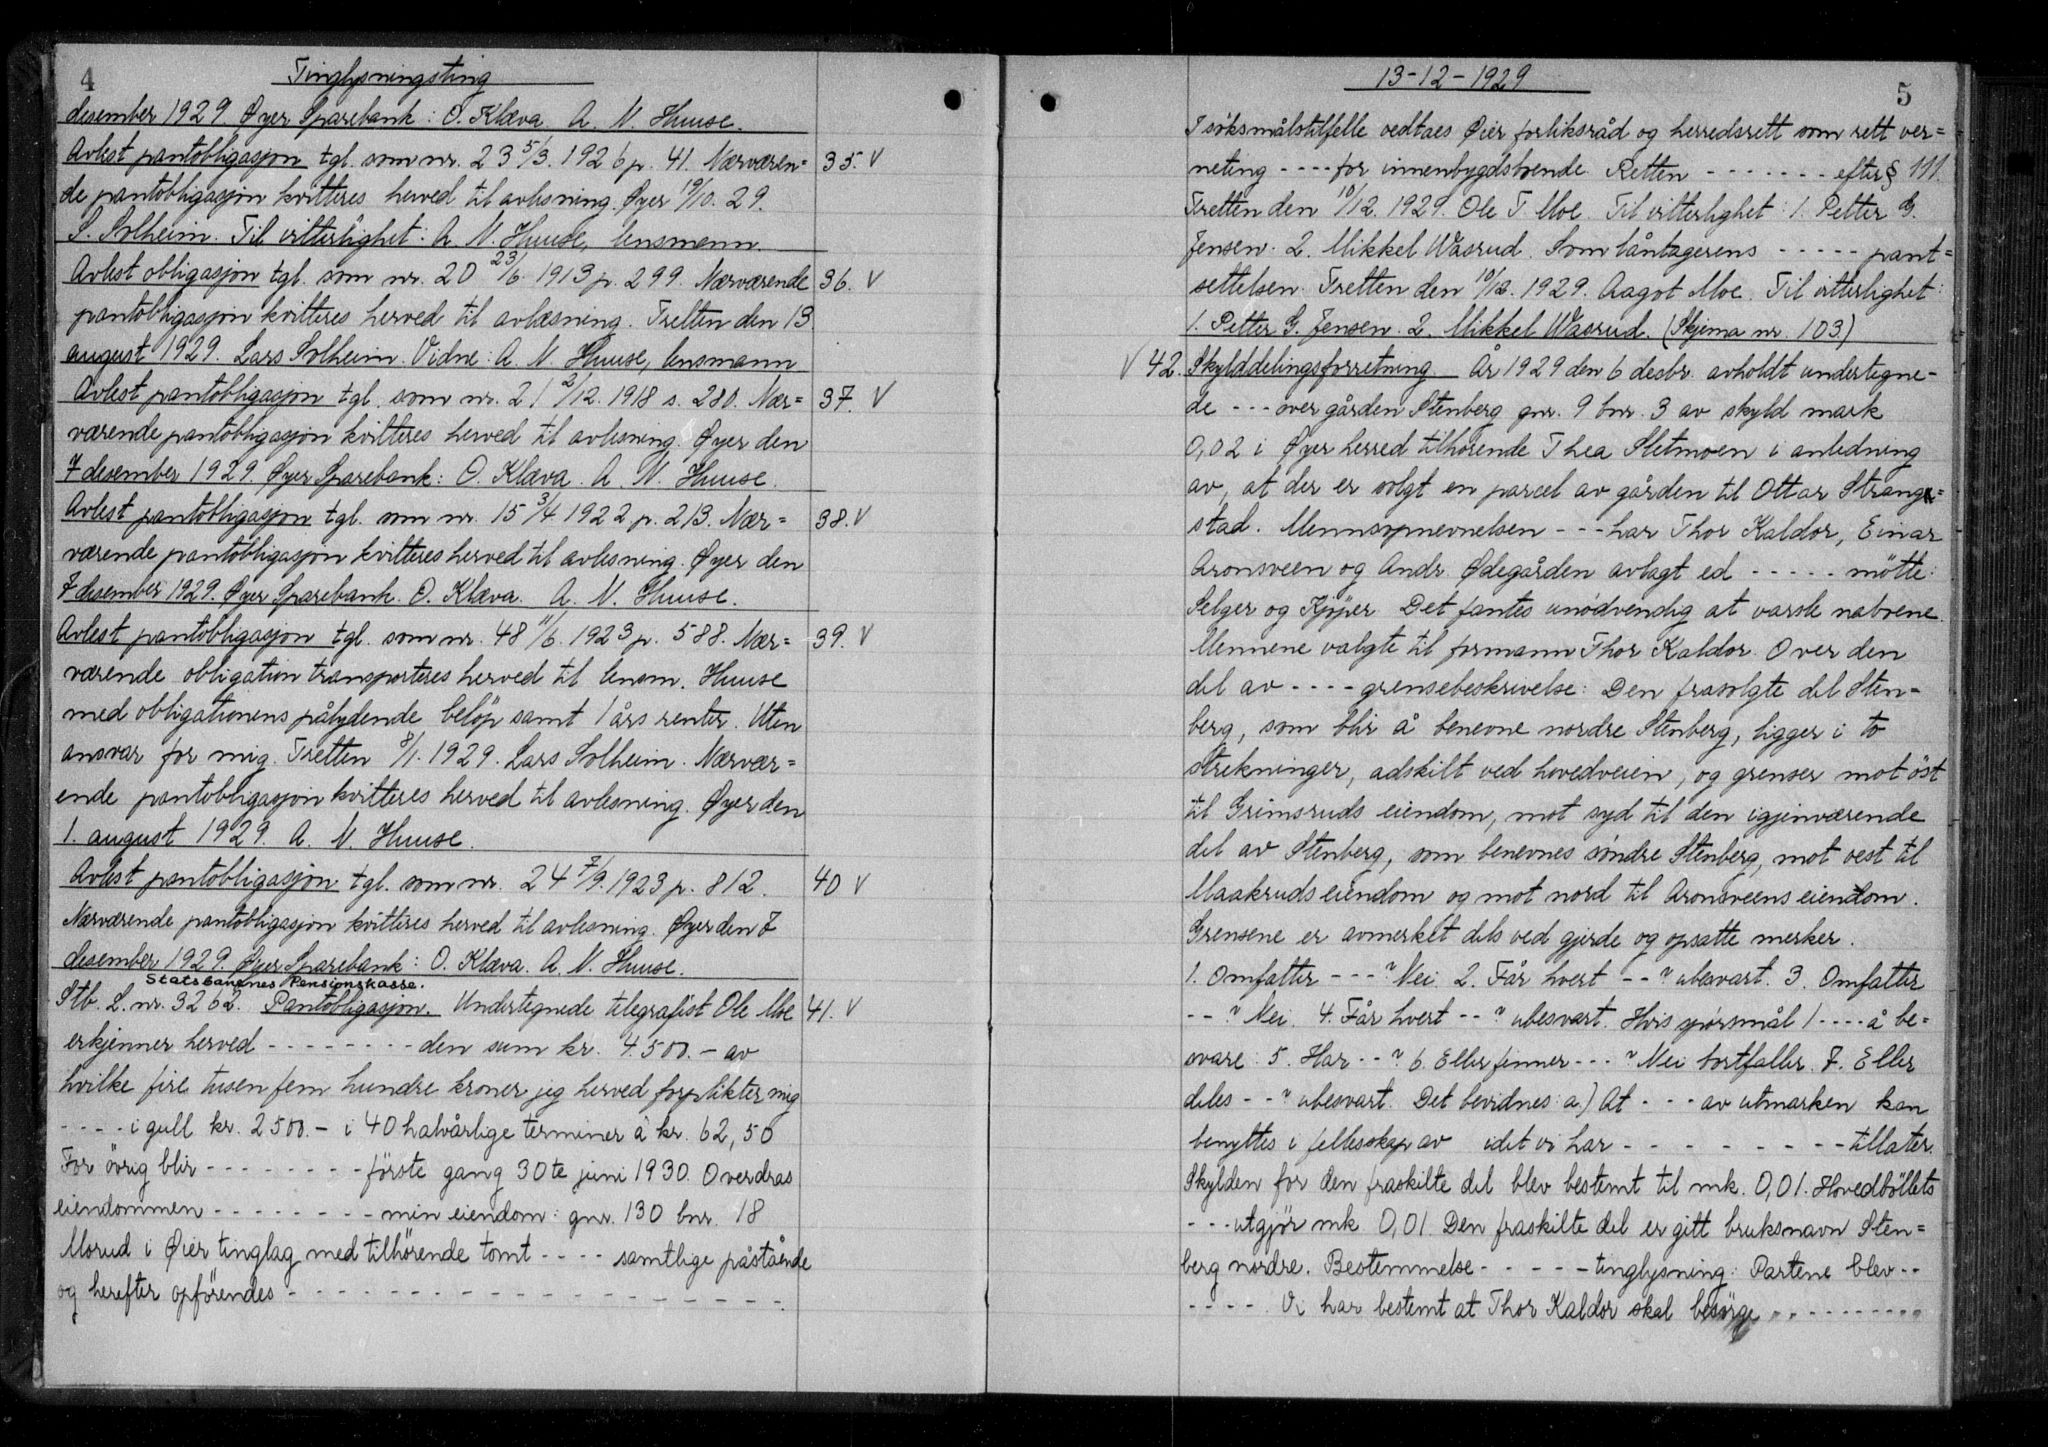 4
Tinglysningsting
desember 1929. Øyer Sparebank: O. Klæva. A. N. Huuse.
Avlest pantobligasjon tgl. som nr. 23 5/3. 1926 p. 41. Nærværen= 35. V
de pantobligasjon kvitteres herved til avlesning. Øyer 19/10. 29.
S. Solheim. Til vitterlighet: A. N. Huuse, lensmann.
Avlest obligasjon tgl. som nr. 20 23/6 1913 p. 299. Nærværende 36. V
pantobligasjon kvitteres herved til avlæsning. Tretten den 13.
august 1929. Lars Solheim. Vidne: A. N. Huuse, lensmann
Avlest pantobligasjon tgl. som nr. 21 2/12. 1918 s. 280. Nær= 37. V
værende pantobligasjon kvitteres herved til avlesning. Øyer den
7 desember 1929. Øyer Sparebank: O. Klæva. A. N. Huuse.
Avlest pantobligasjon tgl. som nr. 15 3/4 1922 p. 213. Nær= 38. V
værende pantobligasjon kvitteres herved til avlesning. Øyer den
7 desember 1929. Øyer Sparebank. O. Klæva. A. N. Huuse.
Avlest pantobligasjon tgl. som nr. 48 11/6. 1923 p. 588. Nær= 39. V
værende obligation transporteres herved til lensm. Huuse
med obligationens pålydende beløp samt 1 års renter. Uten
ansvar for mig. Tretten 8/1. 1929. Lars Solheim. Nærvær=
ende pantobligasjon kvitteres herved til avlesning. Øyer den
1. august 1929. A. N. Huuse.
Avlest pantobligasjon tgl. som nr. 24 7/9. 1923 p. 812. 40 V
Nærværende pantobligasjon kvitteres herved til avlesning. Øyer den 7
desember 1929. Øyer Sparebank: O. Klæva. A. N. Huuse.
Statsbanenes Pensionskasse.
Stb. L. nr. 3262. Pantobligasjon. Undertegnede telegrafist Ole Moe 41. V
erkjenner herved -------- den sum kr. 4.500.- av
hvilke fire tusen fem hundre kroner jeg herved forplikter mig
---- i gull kr. 2500.- i 40 halvårlige terminer à kr. 62,50
For övrig blir -------- förste gang 30te juni 1930. Overdras
eiendommen -------- min eiendom: gnr. 130 bnr. 18
Morud i Øier tinglag med tilhörende tomt ---- samtlige påstående
og herefter opförendes -----------------
13-12-1929
5
I söksmålstilfelle vedtaes Øier forliksråd og herredsrett som rett ver=
neting ---- for innenbygdsboende Retten ------- efter § 111.
Tretten den 10/12. 1929. Ole T. Moe. Til vitterlighet: 1. Petter G.
Jensen. 2. Mikkel Wasrud. Som låntagerens ----- pant=
settelsen. Tretten den 10/12. 1929. Aagot Moe. Til vitterlighet:
1. Petter G. Jensen. 2. Mikkel Wasrud. (Skjema nr. 103)
V 42. Skylddelingsforretning. År 1929 den 6 desbr. avholdt undertegne-
de --- over gården Stenberg gnr. 9 bnr. 3 av skyld mark
0,02 i Øyer herred tilhörende Thea Sletmoen i anledning
av, at der er solgt en parcel av gården til Ottar Strang=
stad. Mennsopnevnelsen --- har Thor Kaldor, Einar
Aronsveen og Andr. Ødegården avlagt ed ----- mötte:
Selger og Kjøper Det fantes unødvendig at varsle naboene.
Mennene valgte til formann Thor Kaldor. Over den
del av ---- grensebeskrivelse: Den frasolgte del Sten-
berg, som blir å benevne nordre Stenberg, ligger i to
strekninger, adskilt ved hovedveien, og grenser mot öst
til Grimsruds eiendom, mot syd til den igjenværende
del av Stenberg, som benevnes söndre Stenberg, mot vest til
Maakruds eiendom og mot nord til Aronsveens eiendom.
Grensene er avmerket dels ved gjerde og opsatte merker.
1. Omfatter ---? Nei. 2. Får hvert --? ubesvart. 3. Omfatter
--? Nei. 4. Får hvert --? ubesvart. Hvis spörsmål 1 ---- å be=
svare: 5. Har --? 6. Eller finner ---? Nei bortfaller. 7. Eller
deles --? ubesvart. Det bevidnes: a.) At --- av utmarken kan
benyttes i fellesskap av idet vi har -------- tillater.
Skylden for den fraskilte del blev bestemt til mk. 0,01. Hovedböllets
--- utgjör mk 0,01. Den fraskilte del er gitt bruksnavn Sten=
berg nordre. Bestemmelse ----- tinglysning: Partene blev --
----. Vi har bestemt at Thor Kaldor skal besörge ----------